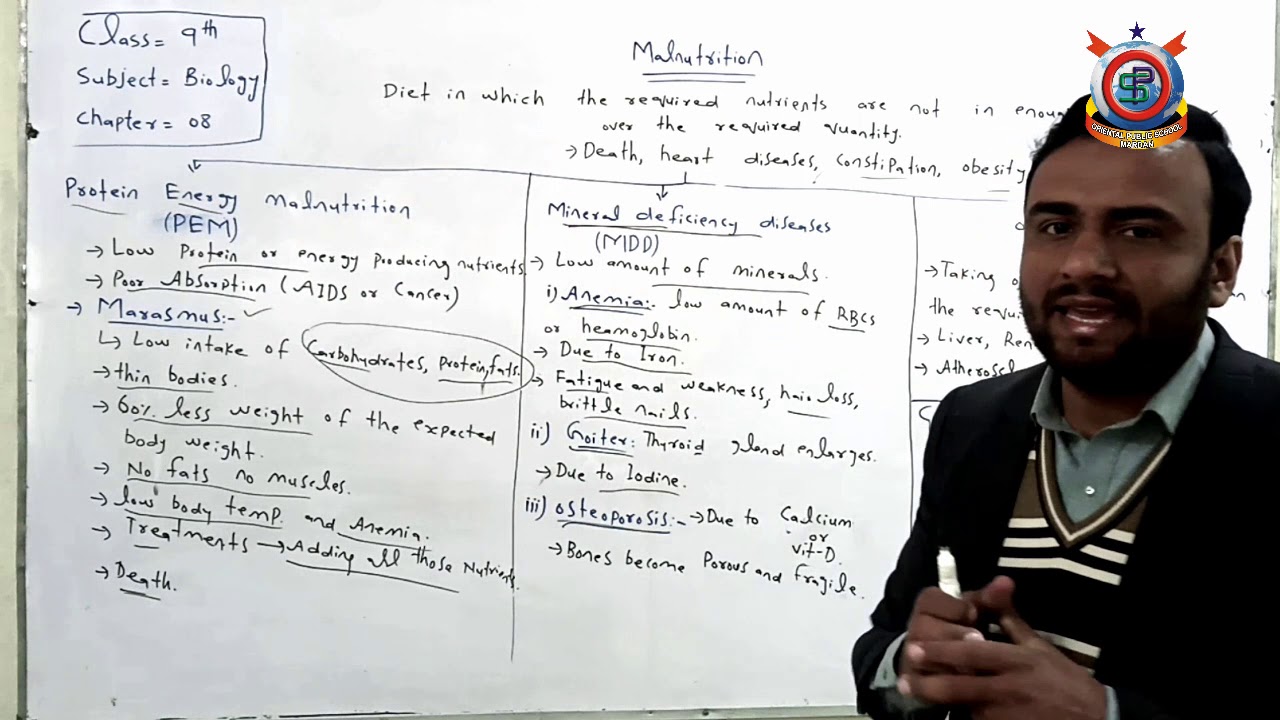 Class = 9th
Subject = Biology
Chapter = 08
Malnutrition
Diet in which the required nutrients are not in
over the required quantity.
→ Death, heart diseases, constipation, obesity
Protein Energy Malnutrition
(PEM)
→ Low Protein or energy producing nutrients.
→ Poor Absorption (AIDS or Cancer)
→ Marasmus:-
↳ Low intake of Carbohydrates, Protein, fats.
→ thin bodies.
→ 60% less weight of the expected
body weight.
→ No fats no muscles.
→ low body temp. and Anemia.
→ Treatments → Adding all those Nutrients.
→ Death.
Mineral deficiency diseases
(MDD)
→ Low amount of minerals.
i) Anemia:- low amount of RBCs
or hemoglobin.
→ Due to Iron.
→ Fatigue and weakness, hair loss,
brittle nails.
ii) Goiter: Thyroid gland enlarges.
→ Due to Iodine.
iii) Osteoporosis:- → Due to Calcium
or
vit-D.
→ Bones become Porous and fragile.
→ Taking
the
→ Liver,
→
ORIENTAL PUBLIC SCHOOL
MARDAN